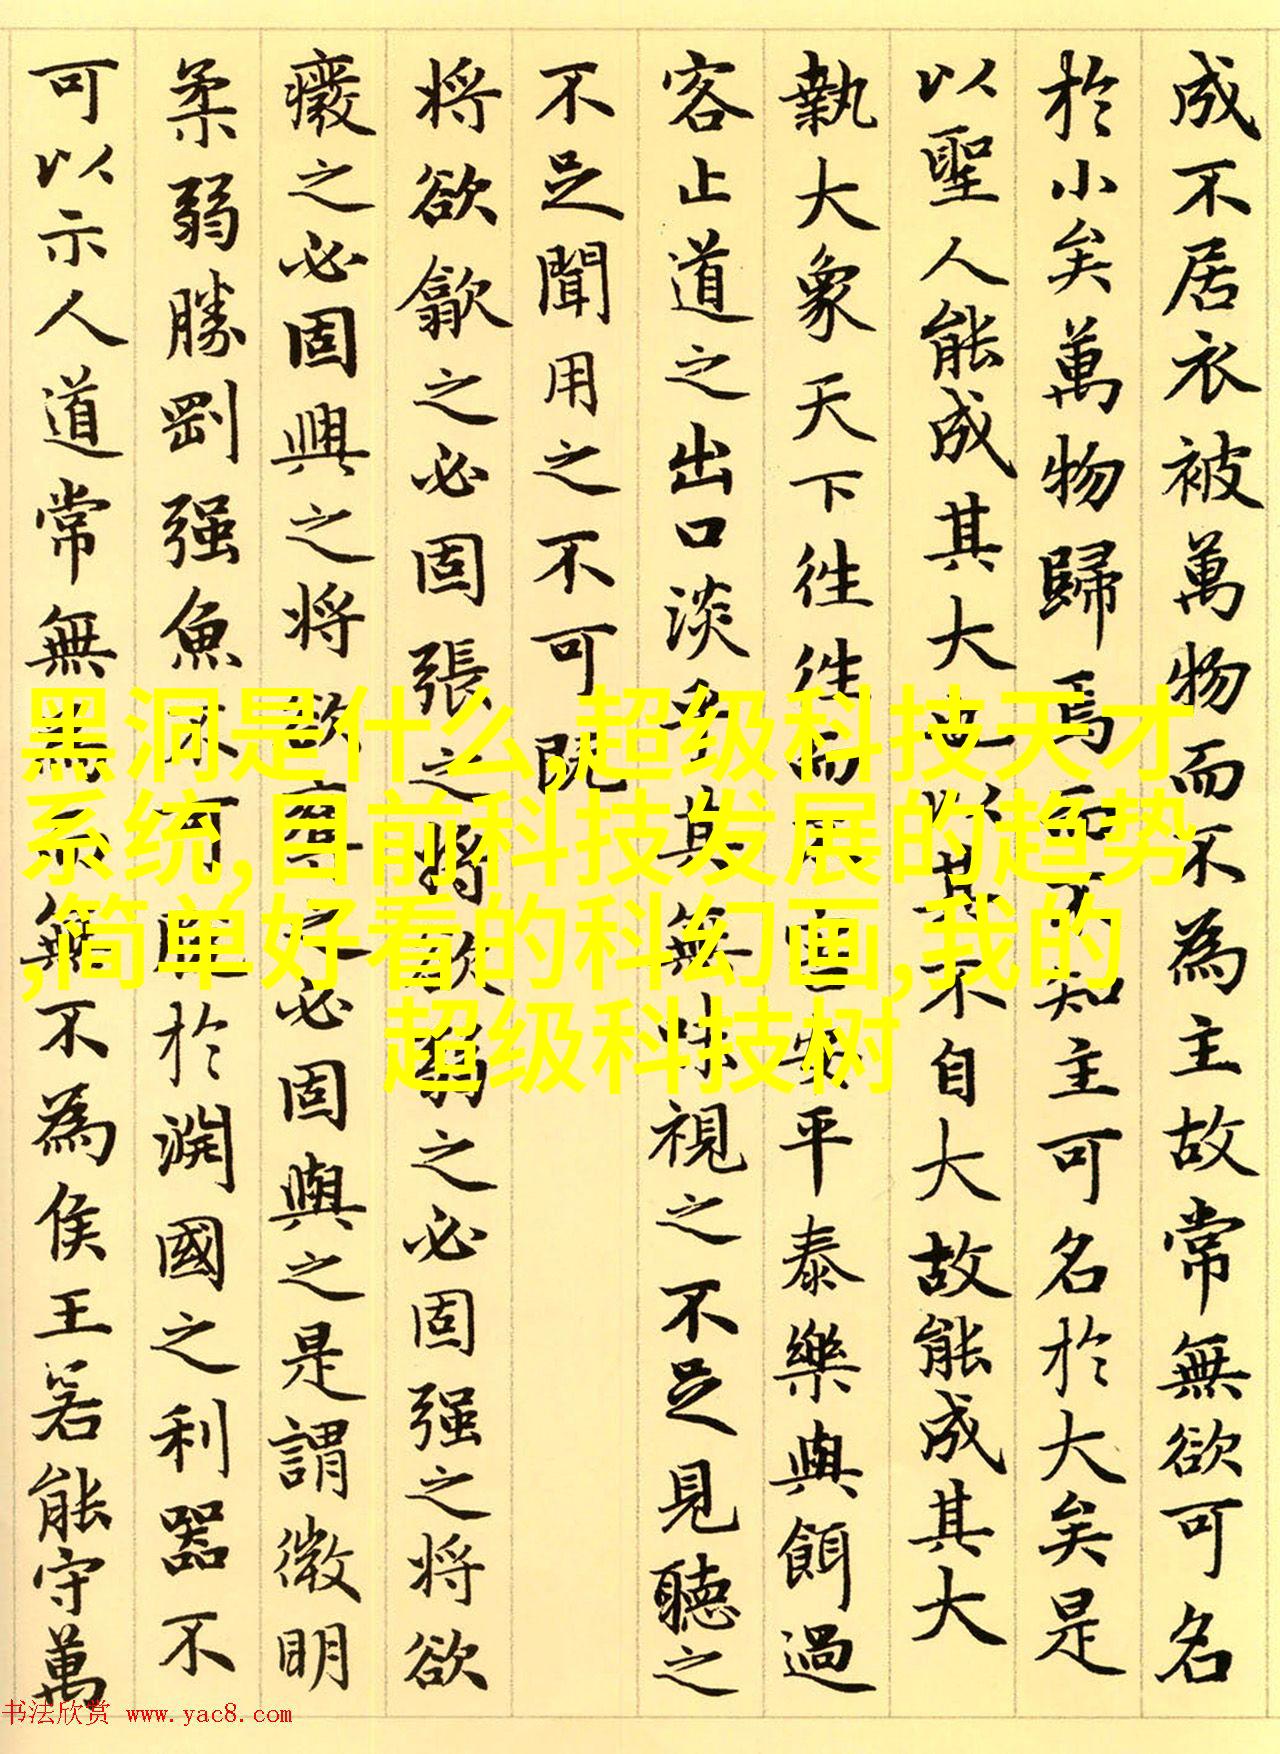 成不居衣被萬物而不為主故常無欲可名
於小矣萬物歸焉而不知主可名於大矣是
以聖人能成其大也以其不自大故能成其大
執大象天下往往而不害安平泰樂與餌過
客止道之出口淡乎其無味視之不足見聽之
不足聞用之不可既
将欲歙之必固張之将欲弱之必固强之将欲
癈之必固興之将欲奪之必固與之是謂微明
柔弱勝剛强魚不可脱於淵國之利器不
可以示人道常無為而無不為侯王若能守萬
黑洞是什么,超级科技天才
系统,目前科技发展的趋势
,简单好看的科幻画,我的
超级科技树
书法欣赏 www.yac8.com